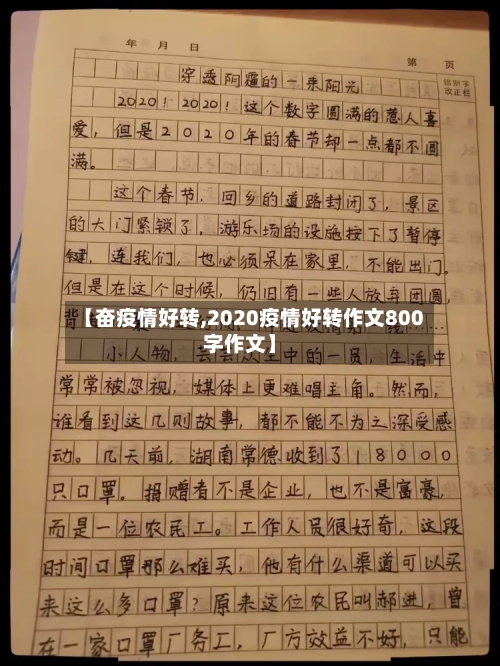 年 月 日
第 页
错别字
改正栏
穿透阴霾的一束阳光
2020！2020！这个数字圆满的惹人喜
爱，但是2020年的春节却一点都不圆
满。
这个春节，回乡的道路封闭了，景区
的大门紧锁了，游乐场的设施按下了暂停
键，连我们，也必须呆在家里，不能出门。
但是在这个时候，仍旧有一些人放弃团圆，
背
【奋疫情好转,2020疫情好转作文800
字作文】
小人物，芸芸众生中的一员，生活中
常常被忽视，媒体上更难唱主角。然而，
谁看到这几则故事，都不能不为之深受感
动。几天前，湖南常德收到了18000
只口罩。捐赠者不是企业，也不是富豪，
而是一位农民工。工作人员很好奇，这段
时间口罩那么难买，他有什么渠道可以买
来这么多口罩？原来这位农民叫郝进，曾
在一家口罩厂务工，厂方效益不好，只能